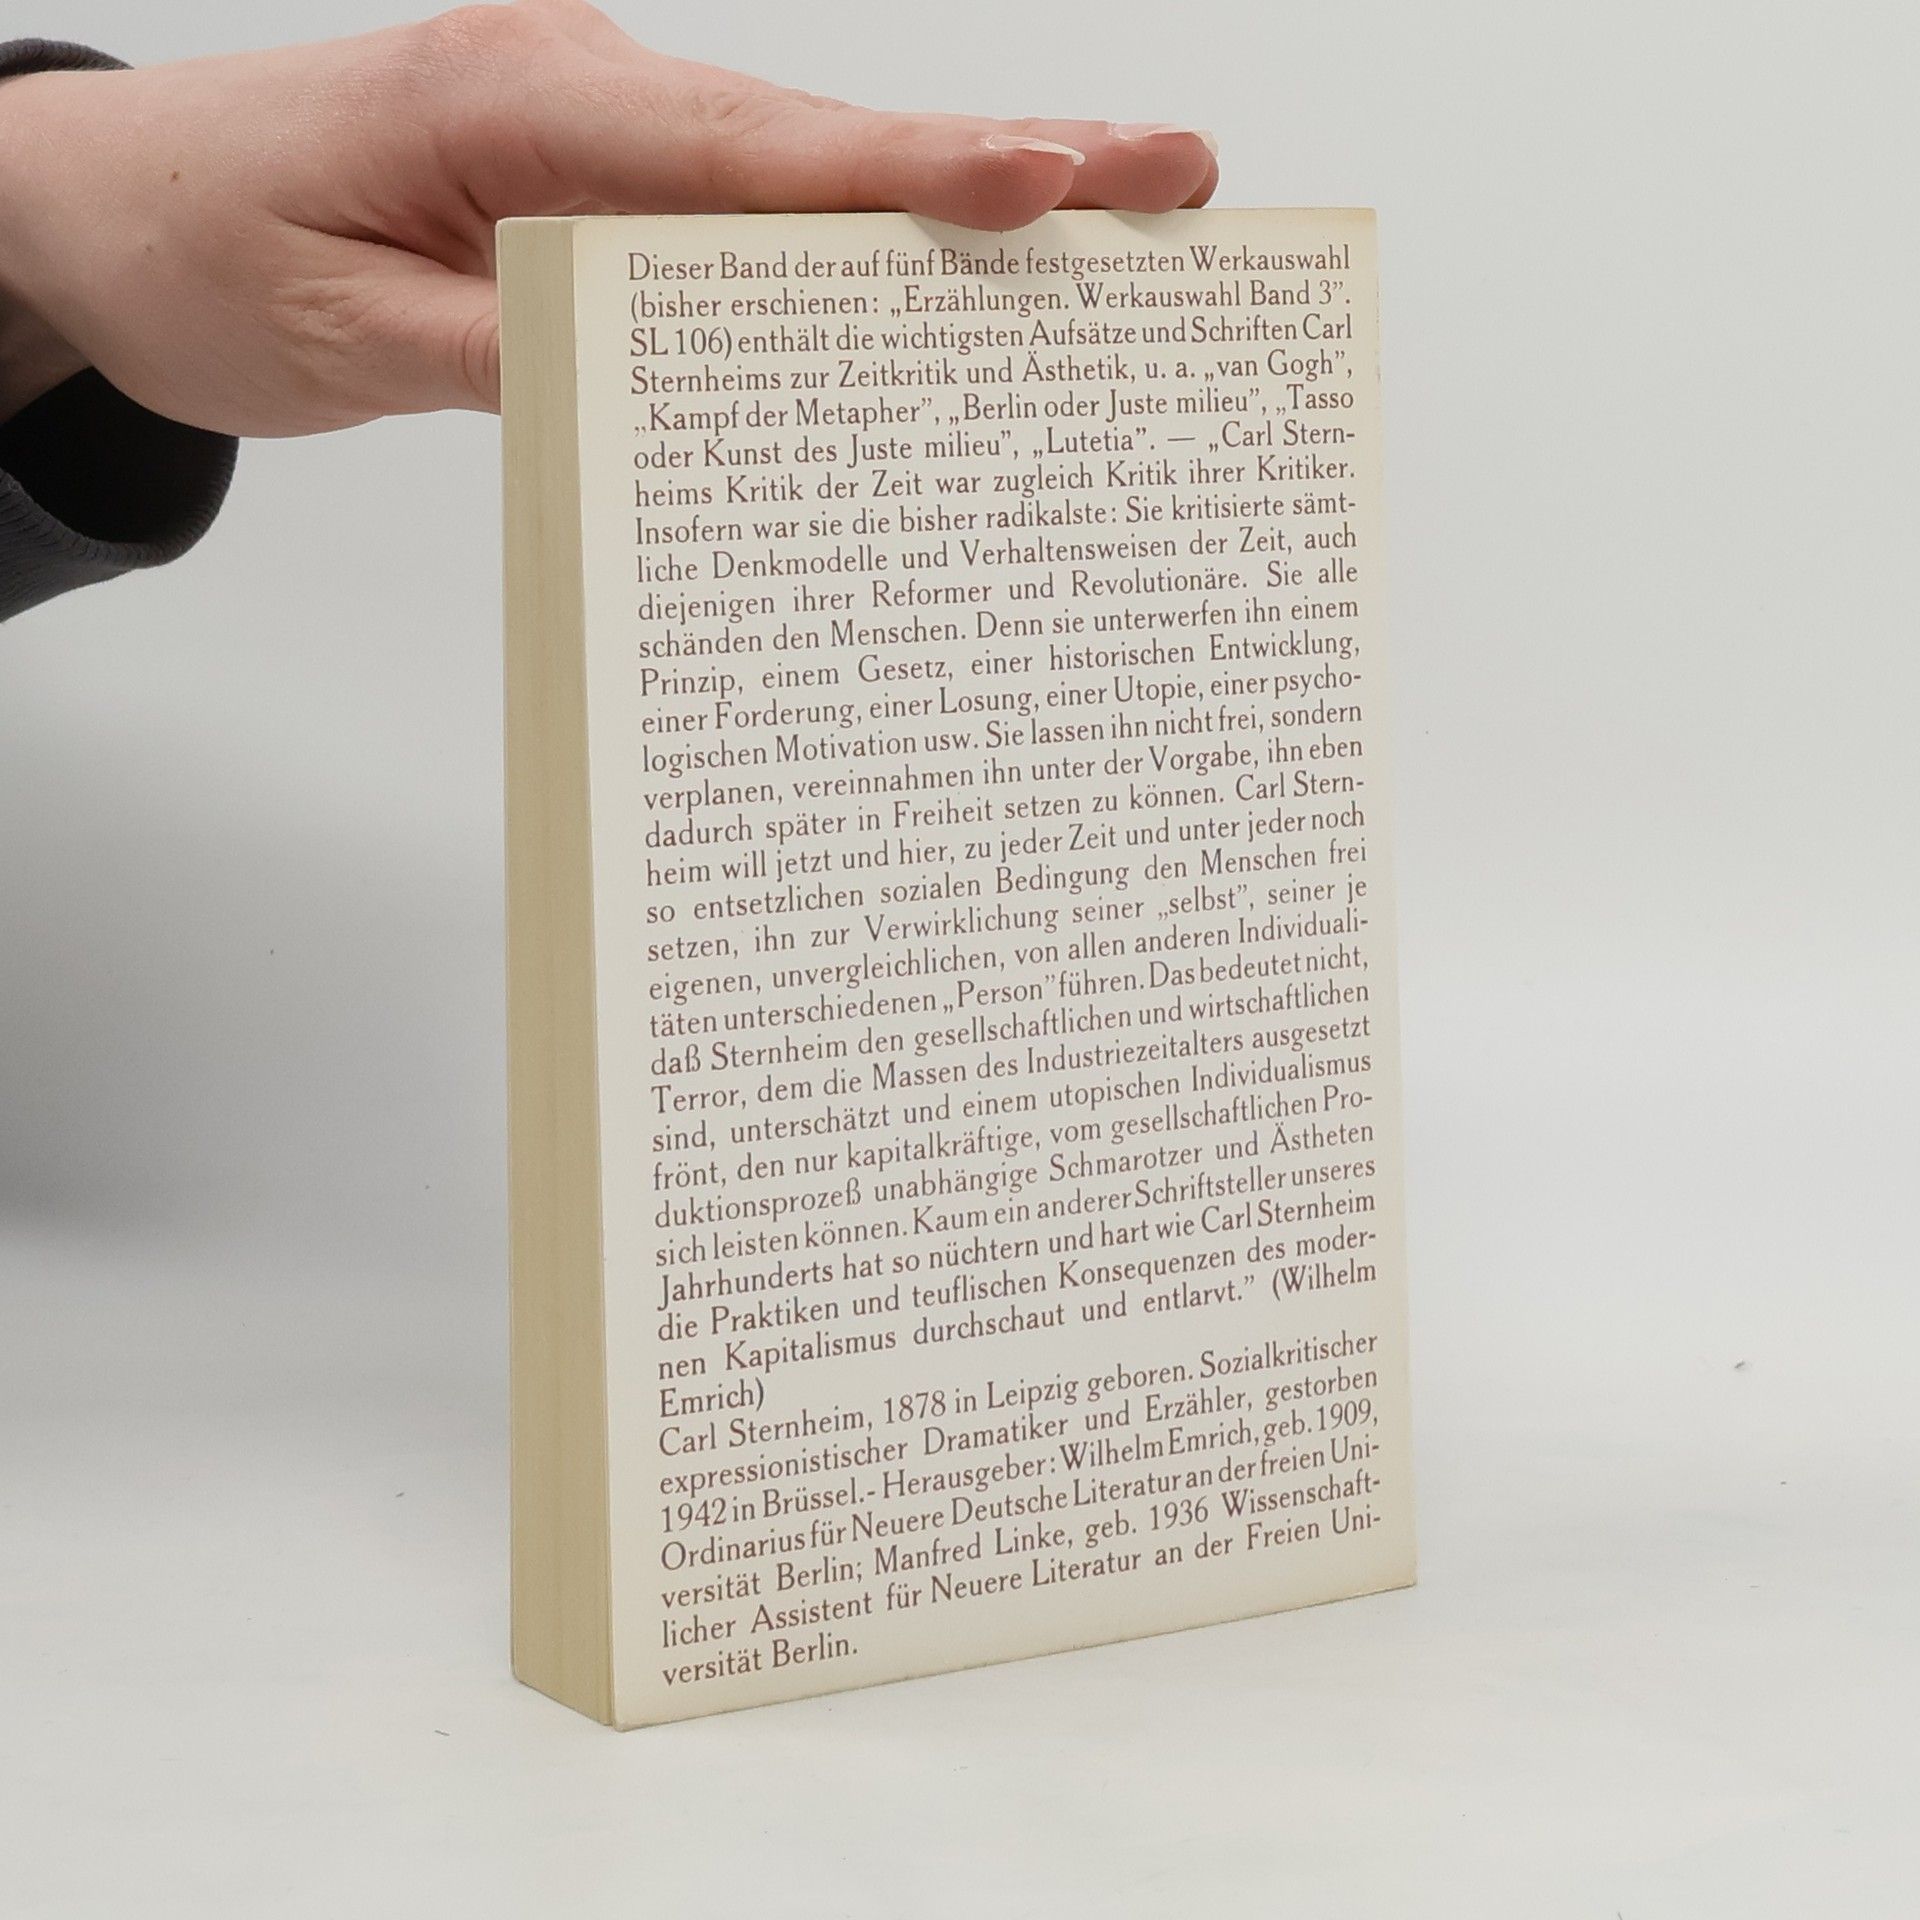 Dieser Band der auf fünf Bände festgesetzten Werkauswahl
(bisher erschienen: „Erzählungen. Werkauswahl Band 3”.
SL 106) enthält die wichtigsten Aufsätze und Schriften Carl
Sternheims zur Zeitkritik und Ästhetik, u. a. „van Gogh”,
„Kampf der Metapher”, „Berlin oder Juste milieu”, „Tasso
oder Kunst des Juste milieu”, „Lutetia”. — „Carl Stern-
heims Kritik der Zeit war zugleich Kritik ihrer Kritiker.
Insofern war sie die bisher radikalste: Sie kritisierte sämt-
liche Denkmodelle und Verhaltensweisen der Zeit, auch
diejenigen ihrer Reformer und Revolutionäre. Sie alle
schänden den Menschen. Denn sie unterwerfen ihn einem
Prinzip, einem Gesetz, einer historischen Entwicklung,
einer Forderung, einer Losung, einer Utopie, einer psycho-
logischen Motivation usw. Sie lassen ihn nicht frei, sondern
verplanen, vereinnahmen ihn unter der Vorgabe, ihn eben
dadurch später in Freiheit setzen zu können. Carl Stern-
heim will jetzt und hier, zu jeder Zeit und unter jeder noch
so entsetzlichen sozialen Bedingung den Menschen frei
setzen, ihn zur Verwirklichung seiner „selbst”, seiner je
eigenen, unvergleichlichen, von allen anderen Individuali-
täten unterschiedenen „Person” führen. Das bedeutet nicht,
daß Sternheim den gesellschaftlichen und wirtschaftlichen
Terror, dem die Massen des Industriezeitalters ausgesetzt
sind, unterschätzt und einem utopischen Individualismus
frönt, den nur kapitalkräftige, vom gesellschaftlichen Pro-
duktionsprozeß unabhängige Schmarotzer und Ästheten
sich leisten können. Kaum ein anderer Schriftsteller unseres
Jahrhunderts hat so nüchtern und hart wie Carl Sternheim
die Praktiken und teuflischen Konsequenzen des moder-
nen Kapitalismus durchschaut und entlarvt.” (Wilhelm
Emrich)
Carl Sternheim, 1878 in Leipzig geboren. Sozialkritischer
expressionistischer Dramatiker und Erzähler, gestorben
1942 in Brüssel.- Herausgeber: Wilhelm Emrich, geb. 1909,
Ordinarius für Neuere Deutsche Literatur an der freien Uni-
versität Berlin; Manfred Linke, geb. 1936 Wissenschaft-
licher Assistent für Neuere Literatur an der Freien Uni-
versität Berlin.